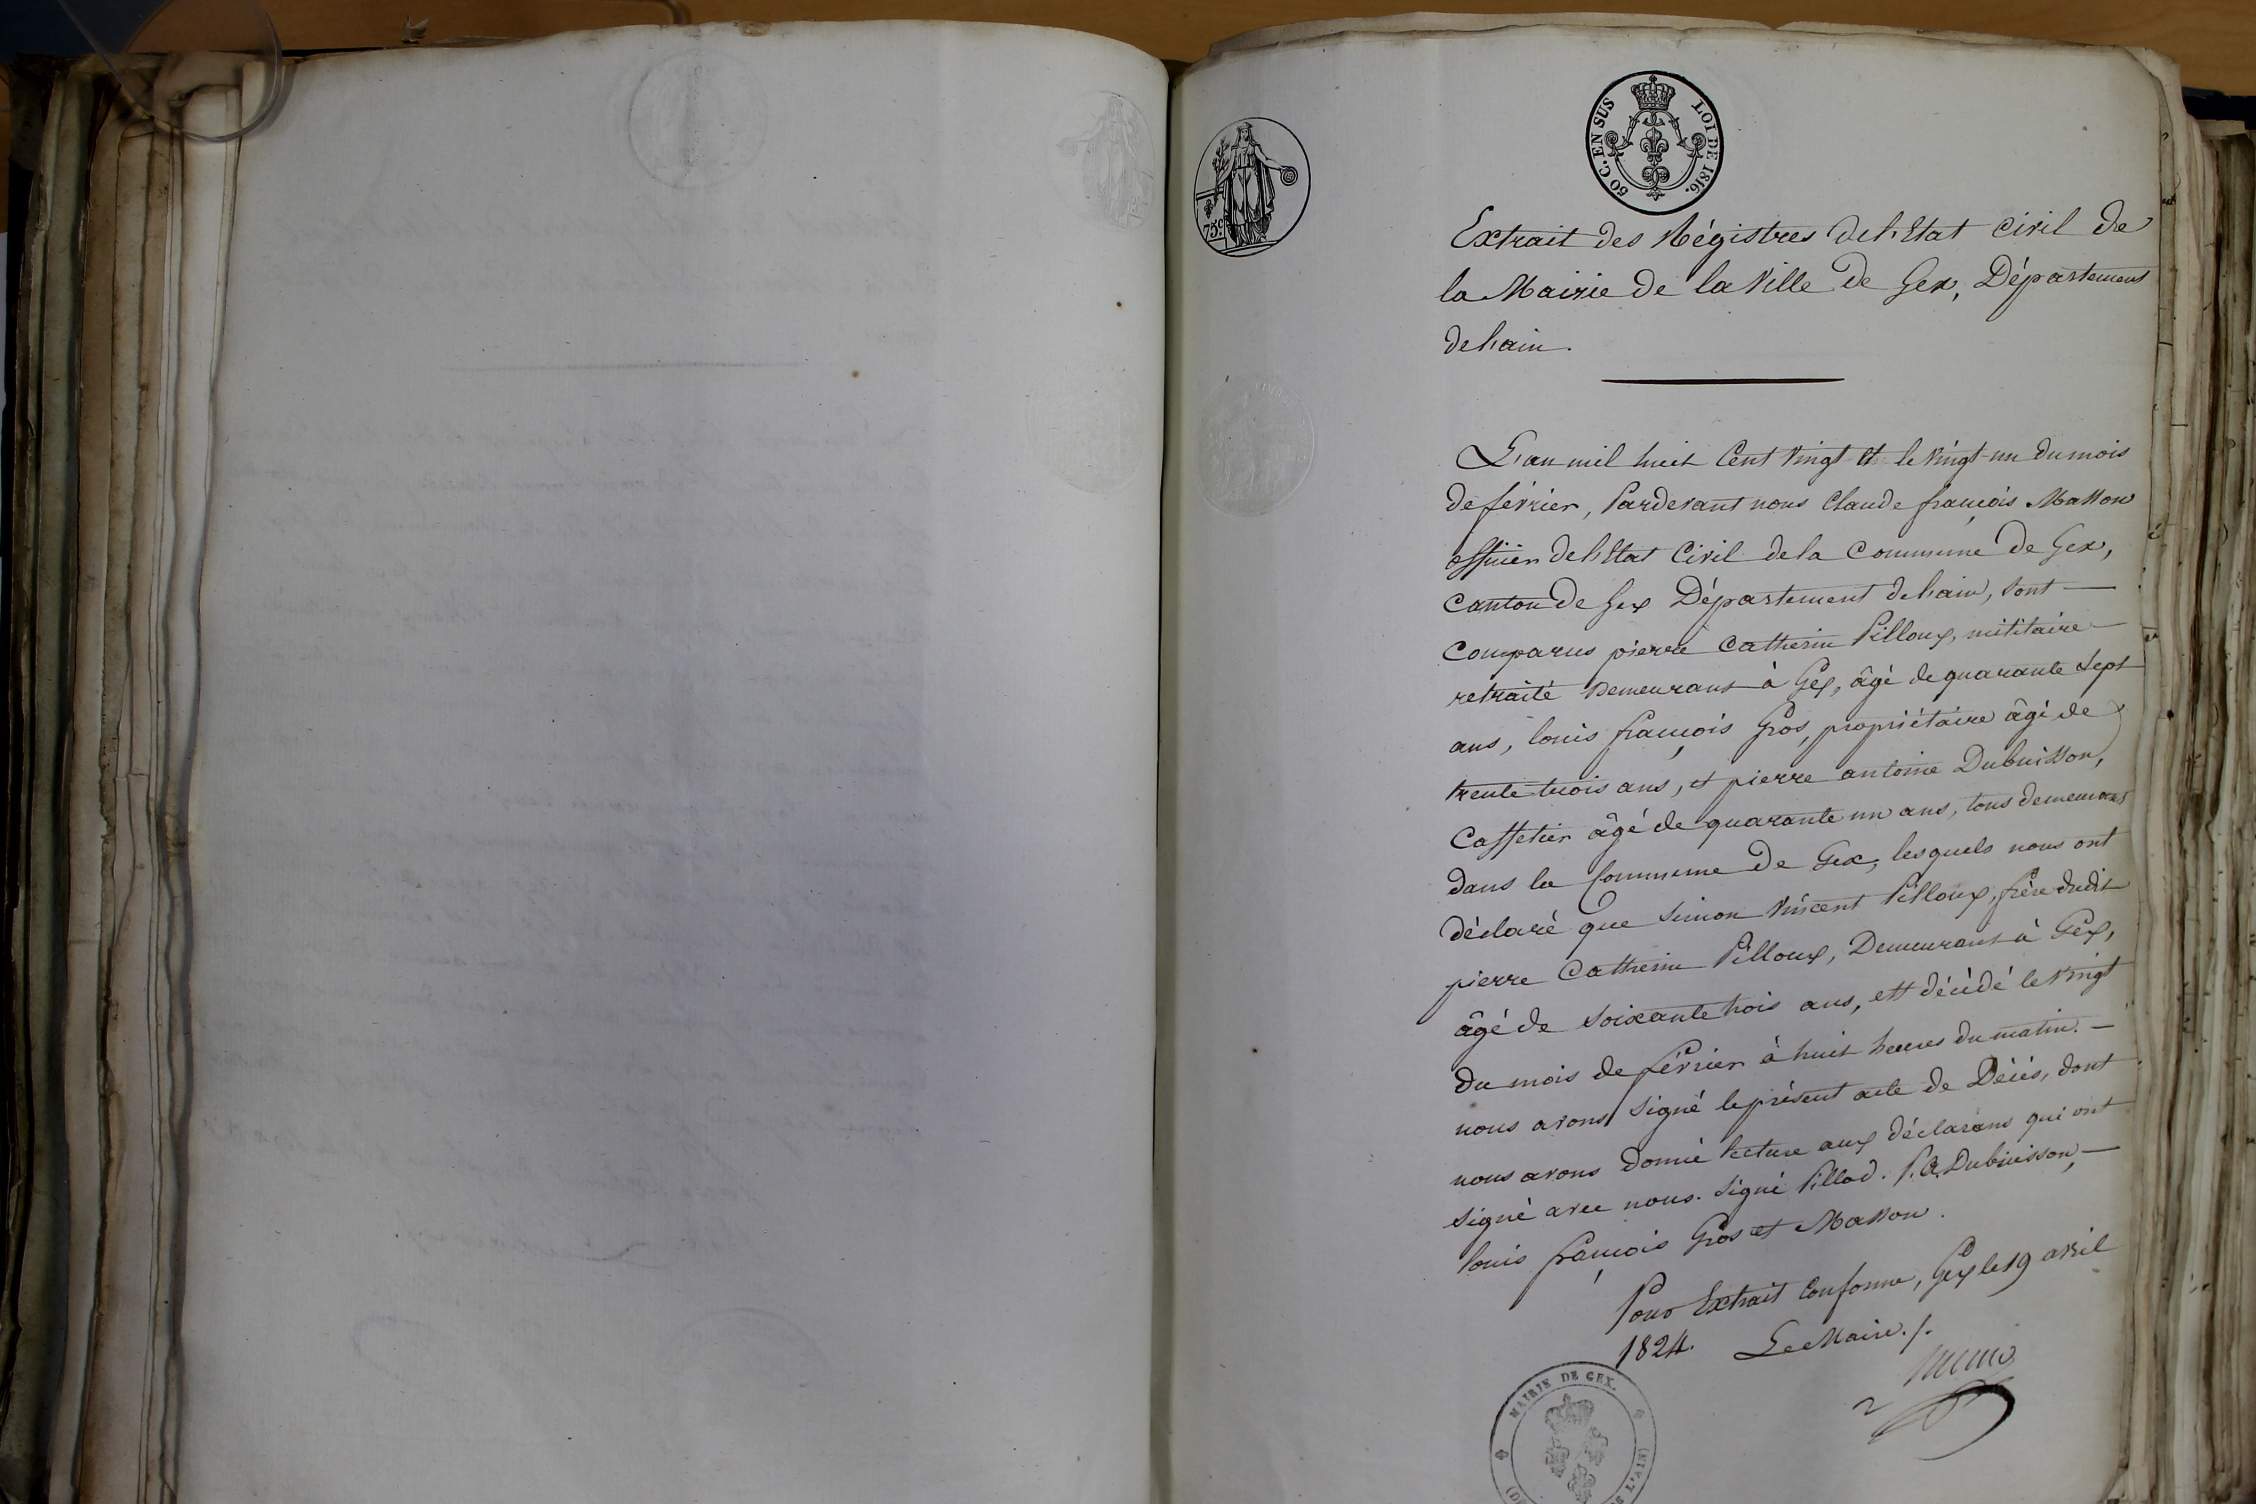 50 C. EN SUS LOI DE 1816.
75 c.
Extrait des Régistres de l'Etat civil de
la Mairie de la Ville de Gex, Département
de l'ain.
L'an mil huit Cent Vingt et le Vingt-un du mois
de février, Pardevant nous Claude françois Masson
officier de l'Etat Civil de la Commune de Gex,
Canton de Gex Département de l'ain, sont
Comparus pierre Catherin Pilloux, militaire
retraité Demeurant à Gex, âgé de quarante sept
ans, louis françois Gros, propriétaire âgé de
trente trois ans, et pierre antoine Dubuisson,
Caffetier âgé de quarante un ans, tous demeurans
dans la Commune de Gex, lesquels nous ont
déclaré que Simon Vincent Pilloux, frère dudit
pierre Catherin Pilloux, Demeurant à Gex,
âgé de soixante trois ans, est décédé le vingt
du mois de février à huit heures du matin.
nous avons signé le présent acte de Décés, dont
nous avons donné lecture aux déclarans qui ont
signé avec nous. Signé Pillod. P. A. Dubuisson,
louis françois Gros et Masson.
Pour Extrait Conforme, Gex le 19 avril
1824. Le Maire./.
MAIRIE DE GEX.
DE L'AIN)